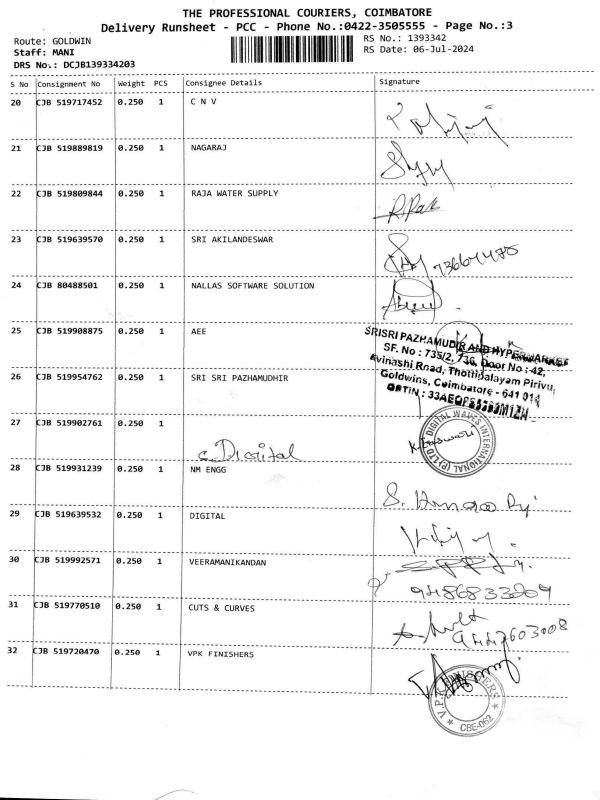 THE PROFESSIONAL COURIERS, COIMBATORE
Delivery Runsheet - PCC - Phone No.:0422-3505555 - Page No.:3
Route: GOLDWIN RS No.: 1393342
Staff: MANI RS Date: 06-Jul-2024
DRS No.: DCJB139334203
S No Consignment No Weight PCS Consignee Details Signature
20 CJB 519717452 0.250 1 C N V
21 CJB 519889819 0.250 1 NAGARAJ
22 CJB 519809844 0.250 1 RAJA WATER SUPPLY
23 CJB 519639570 0.250 1 SRI AKILANDESWAR
24 CJB 80488501 0.250 1 NALLAS SOFTWARE SOLUTION
25 CJB 519908875 0.250 1 AEE
SRISRI PAZHAMUDIR AND HYPERMARKET
SF. No : 735/2, 736, Door No : 42,
Avinashi Road, Thottipalayam Pirivu,
Goldwins, Coimbatore - 641 014
26 CJB 519954762 0.250 1 SRI SRI PAZHAMUDHIR
27 CJB 519902761 0.250 1
DIGITAL WAVES INTERNATIONAL (P) LTD
Digital
28 CJB 519931239 0.250 1 NM ENGG
29 CJB 519639532 0.250 1 DIGITAL
30 CJB 519992571 0.250 1 VEERAMANIKANDAN
9486833209
31 CJB 519770510 0.250 1 CUTS & CURVES
9447603008
32 CJB 519720470 0.250 1 VPK FINISHERS
CBE-062